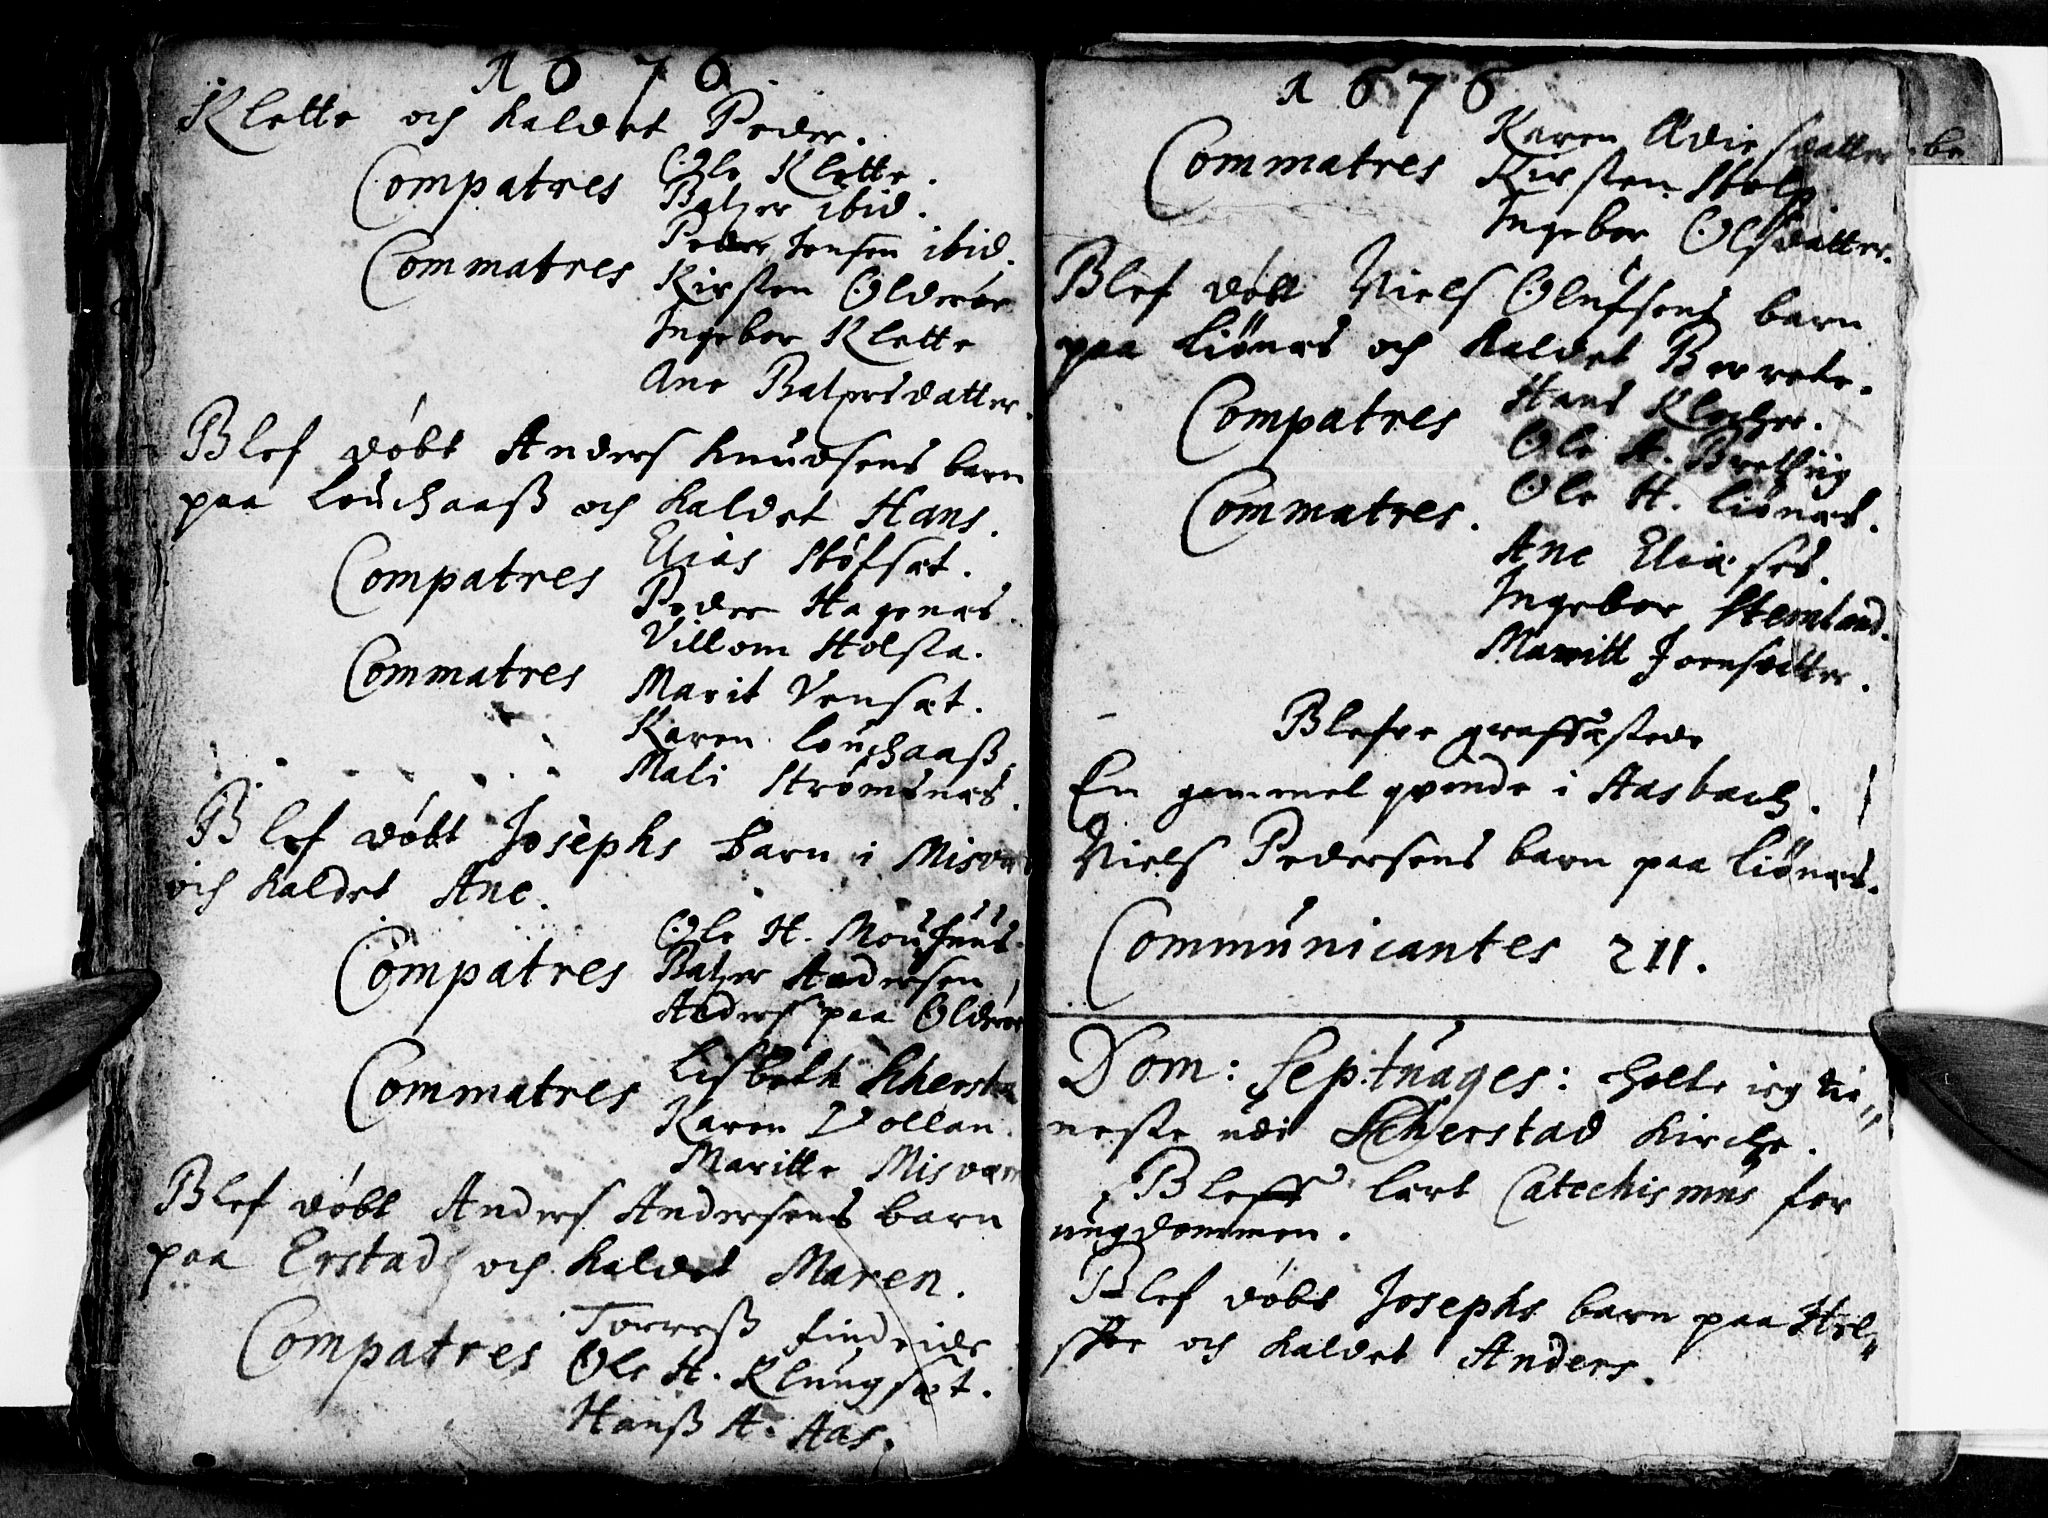 1676
Klette och kaldet Peder.
Compatres Ole Klette.
Balzer ibid.
Peder Jensen ibid.
Commatres Kirsten Olderøe
Ingebor Klette
Ane Balzersdatter.
Blef døbt Anders Knudsens barn
paa Leuchaaß och kaldet Hans.
Compatres Elias Støfsæt.
Peder Hagenæs.
Villom Holsta.
Commatres Marit Vensæt.
Karen Leuchaaß.
Mali Strømsnæs.
Blef døbt Josephs barn i Misvær
och kaldet Ane.
Compatres Ole H.
Balzer Andersen
Anders paa Olderøe
Commatres Lisbeth Scherstad
Karen Vollan.
Maritte Misvær
Blef døbt Anders Andersens barn
paa Erstad och kaldet Maren.
Compatres Torreß Findeide
Ole H. Klungsæt.
Hanß A. Aas.
1676
Commatres Karen datter
Kirsten
Ingebor Olsdatter.
Blef døbt Niels Olufsens barn
paa Liønæs och kaldet Berrete.
Compatres Hans Klocher.
Ole H.
Ole H. Liønæs.
Commatres. Ane Eliæ
Ingebor Stemland.
Maritt Joensdatter.
Blefve graffæstede
En gammel qvende i Aasbach.
Niels Pedersens barn paa Liønæs.
Communicantes 211.
Dom: Septuages: holte ieg tie-
neste udi Scherstad Kirche.
Bleff lært Catechismus for
ungdommen.
Blef døbt Josephs barn paa
och kaldet Anders.